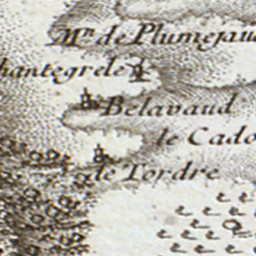 Mn de Plumejau
hantegrele
Belavaud
le Cado
de Tordre